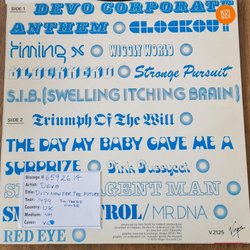 SIDE 1
DEVO CORPORATE
ANTHEM CLOCKOUT
TIMING X WIGGLY WORLD
BLOCKHEAD Strange Pursuit
S.I.B. (SWELLING ITCHING BRAIN)
SIDE 2
Triumph Of The Will
THE DAY MY BABY GAVE ME A
SURPRIZE Pink Pussycat
GENT MAN
ROL/MR.DNA
RED EYE
V2125
Artist: DEVO
Title: DUTY NOW FOR THE FUTURE
Year: 1979
Country: UK
Media: NM
Cover: VG